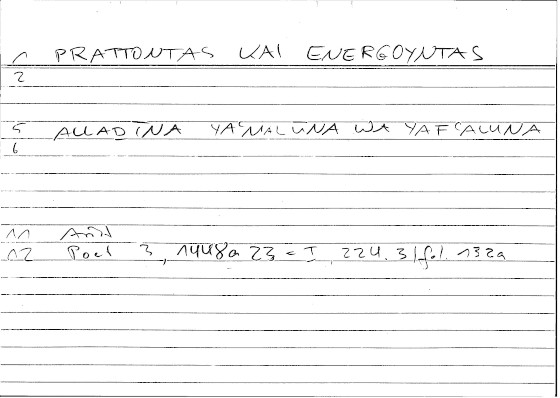 1 PRATTONTAS KAI ENERGOYNTAS
2
5 ALLADĪNA YAʿMALŪNA WA YAFʿALUNA
6
11
12 Poet 3, 1448a 23 = I, 224.3/fol. 132a